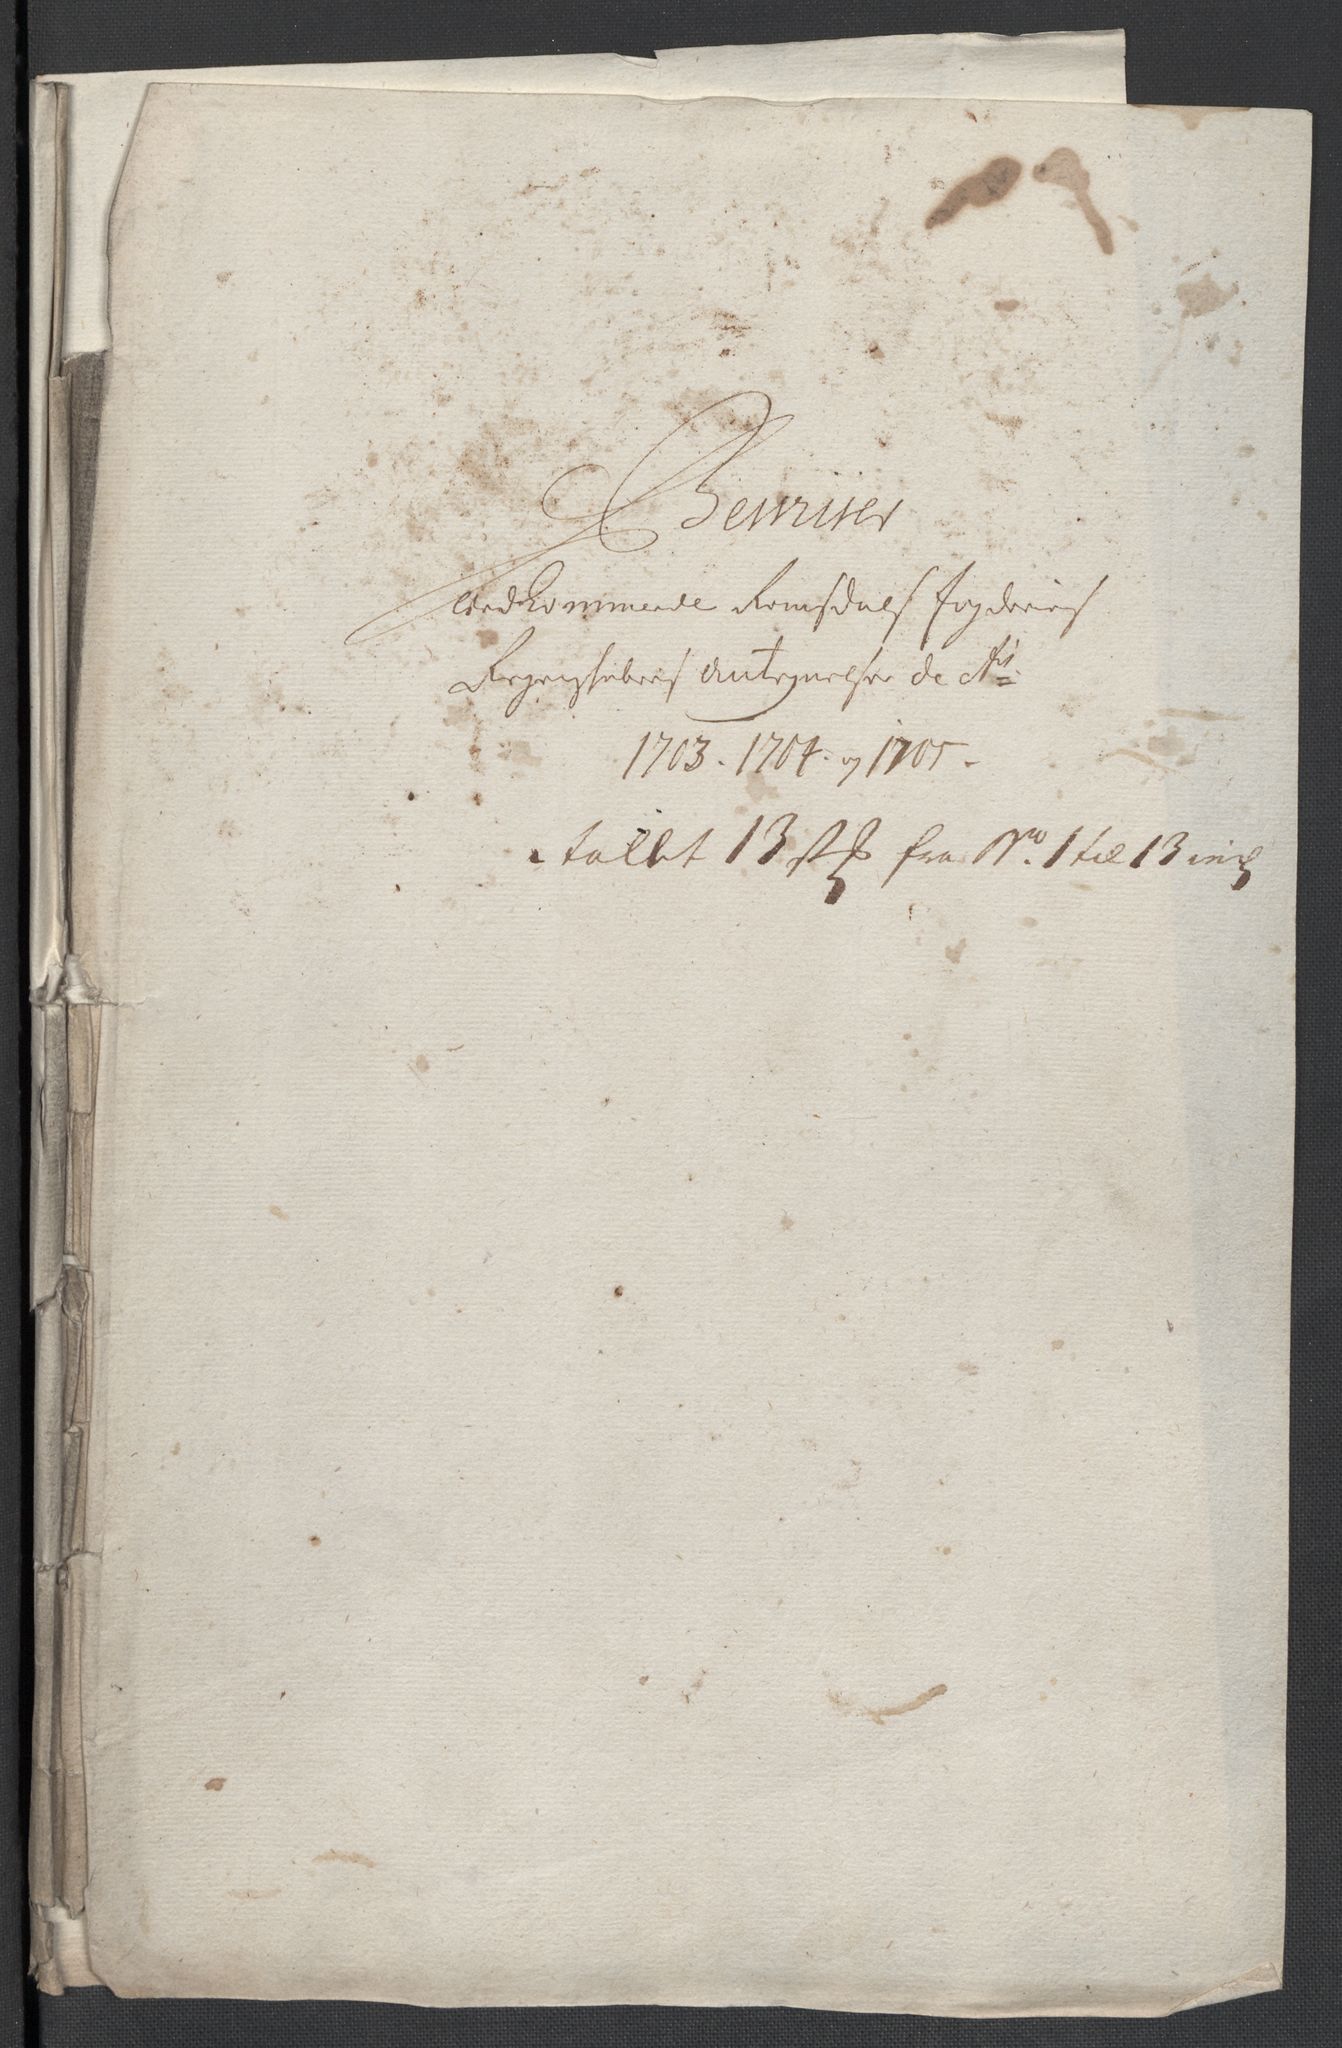 Beviser
Vedkommende Romsdals fogderies
Regenskabers Antegnelser de A:is
1703. 1704. og 1705.
tallet 13 st: fra No. 1 til 13 incl